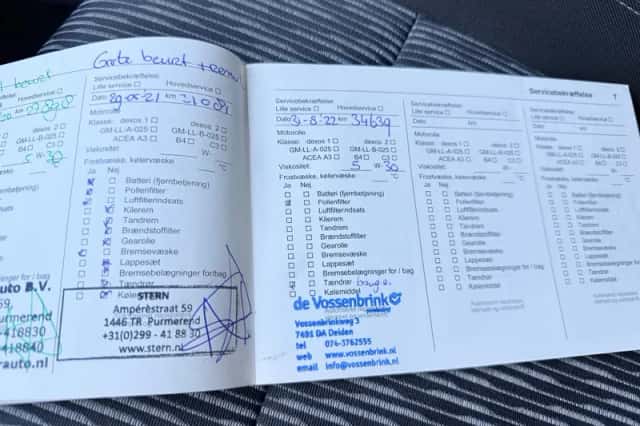 Grote beurt
Servicebekræftelse
Lille service Hovedservice
Dato km
Motorolie
dexos 2
GM-LL-A-025 GM-LL-B-025
ACEA A3 B4 C3
Viskositet: W-
Frostvæske, kølervæske °C
Ja Nej
Batteri (fjernbetjening)
Pollenfilter
Luftfilterindsats
Kilerem
Tandrem
Brændstoffilter
Gearolie
Bremsevæske
Lappesæt
Bremsebelægninger for/bag
Tændrør
Kølemiddel
STERN
Ampèrèstraat 59
1446 TR Purmerend
+31(0)299 - 41 88 30
www.stern.nl
auto B.V.
59,
urmerend
418830
418840
rauto.nl
Servicebekræftelse
Lille service Hovedservice
Dato 31-8-22 km 34639
Motorolie
Klasse: dexos 1 dexos 2
GM-LL-A-025 GM-LL-B-025
ACEA A3 B4 C3
Viskositet: 5 W- 30
Frostvæske, kølervæske °C
Ja Nej
Batteri (fjernbetjening)
Pollenfilter
Luftfilterindsats
Kilerem
Tandrem
Brændstoffilter
Gearolie
Bremsevæske
Lappesæt
Bremsebelægninger for / bag
Tændrør bougie
Kølemiddel
de Vossenbrink
Vossenbrinkweg 3
7491 DA Delden
tel 074-3762555
web www.vossenbrink.nl
email info@vossenbrink.nl
Servicebekræftelse
Lille service Hovedservice
Dato km
Motorolie
Klasse: dexos 1 dexos 2
GM-LL-A-025 GM-LL-B-025
ACEA A3 B4 C3
Viskositet: W-
Frostvæske, kølervæske °C
Ja Nej
Batteri (fjernbetjening)
Pollenfilter
Luftfilterindsats
Kilerem
Tandrem
Brændstoffilter
Gearolie
Bremsevæske
Lappesæt
Bremsebelægninger for / bag
Tændrør
Kølemiddel
Servicebekræftelse 7
Servicebekræftelse
Lille service Hovedservice
Dato km
Motorolie
Klasse: dexos 1 dexos 2
GM-LL-A-025 GM-LL-B-025
ACEA A3 B4 C3
Viskositet: W-
Frostvæske, kølervæske °C
Ja Nej
Batteri (fjernbetjening)
Pollenfilter
Luftfilterindsats
Kilerem
Tandrem
Brændstoffilter
Gearolie
Bremsevæske
Lappesæt
Bremsebelægninger for / bag
Tændrør
Kølemiddel